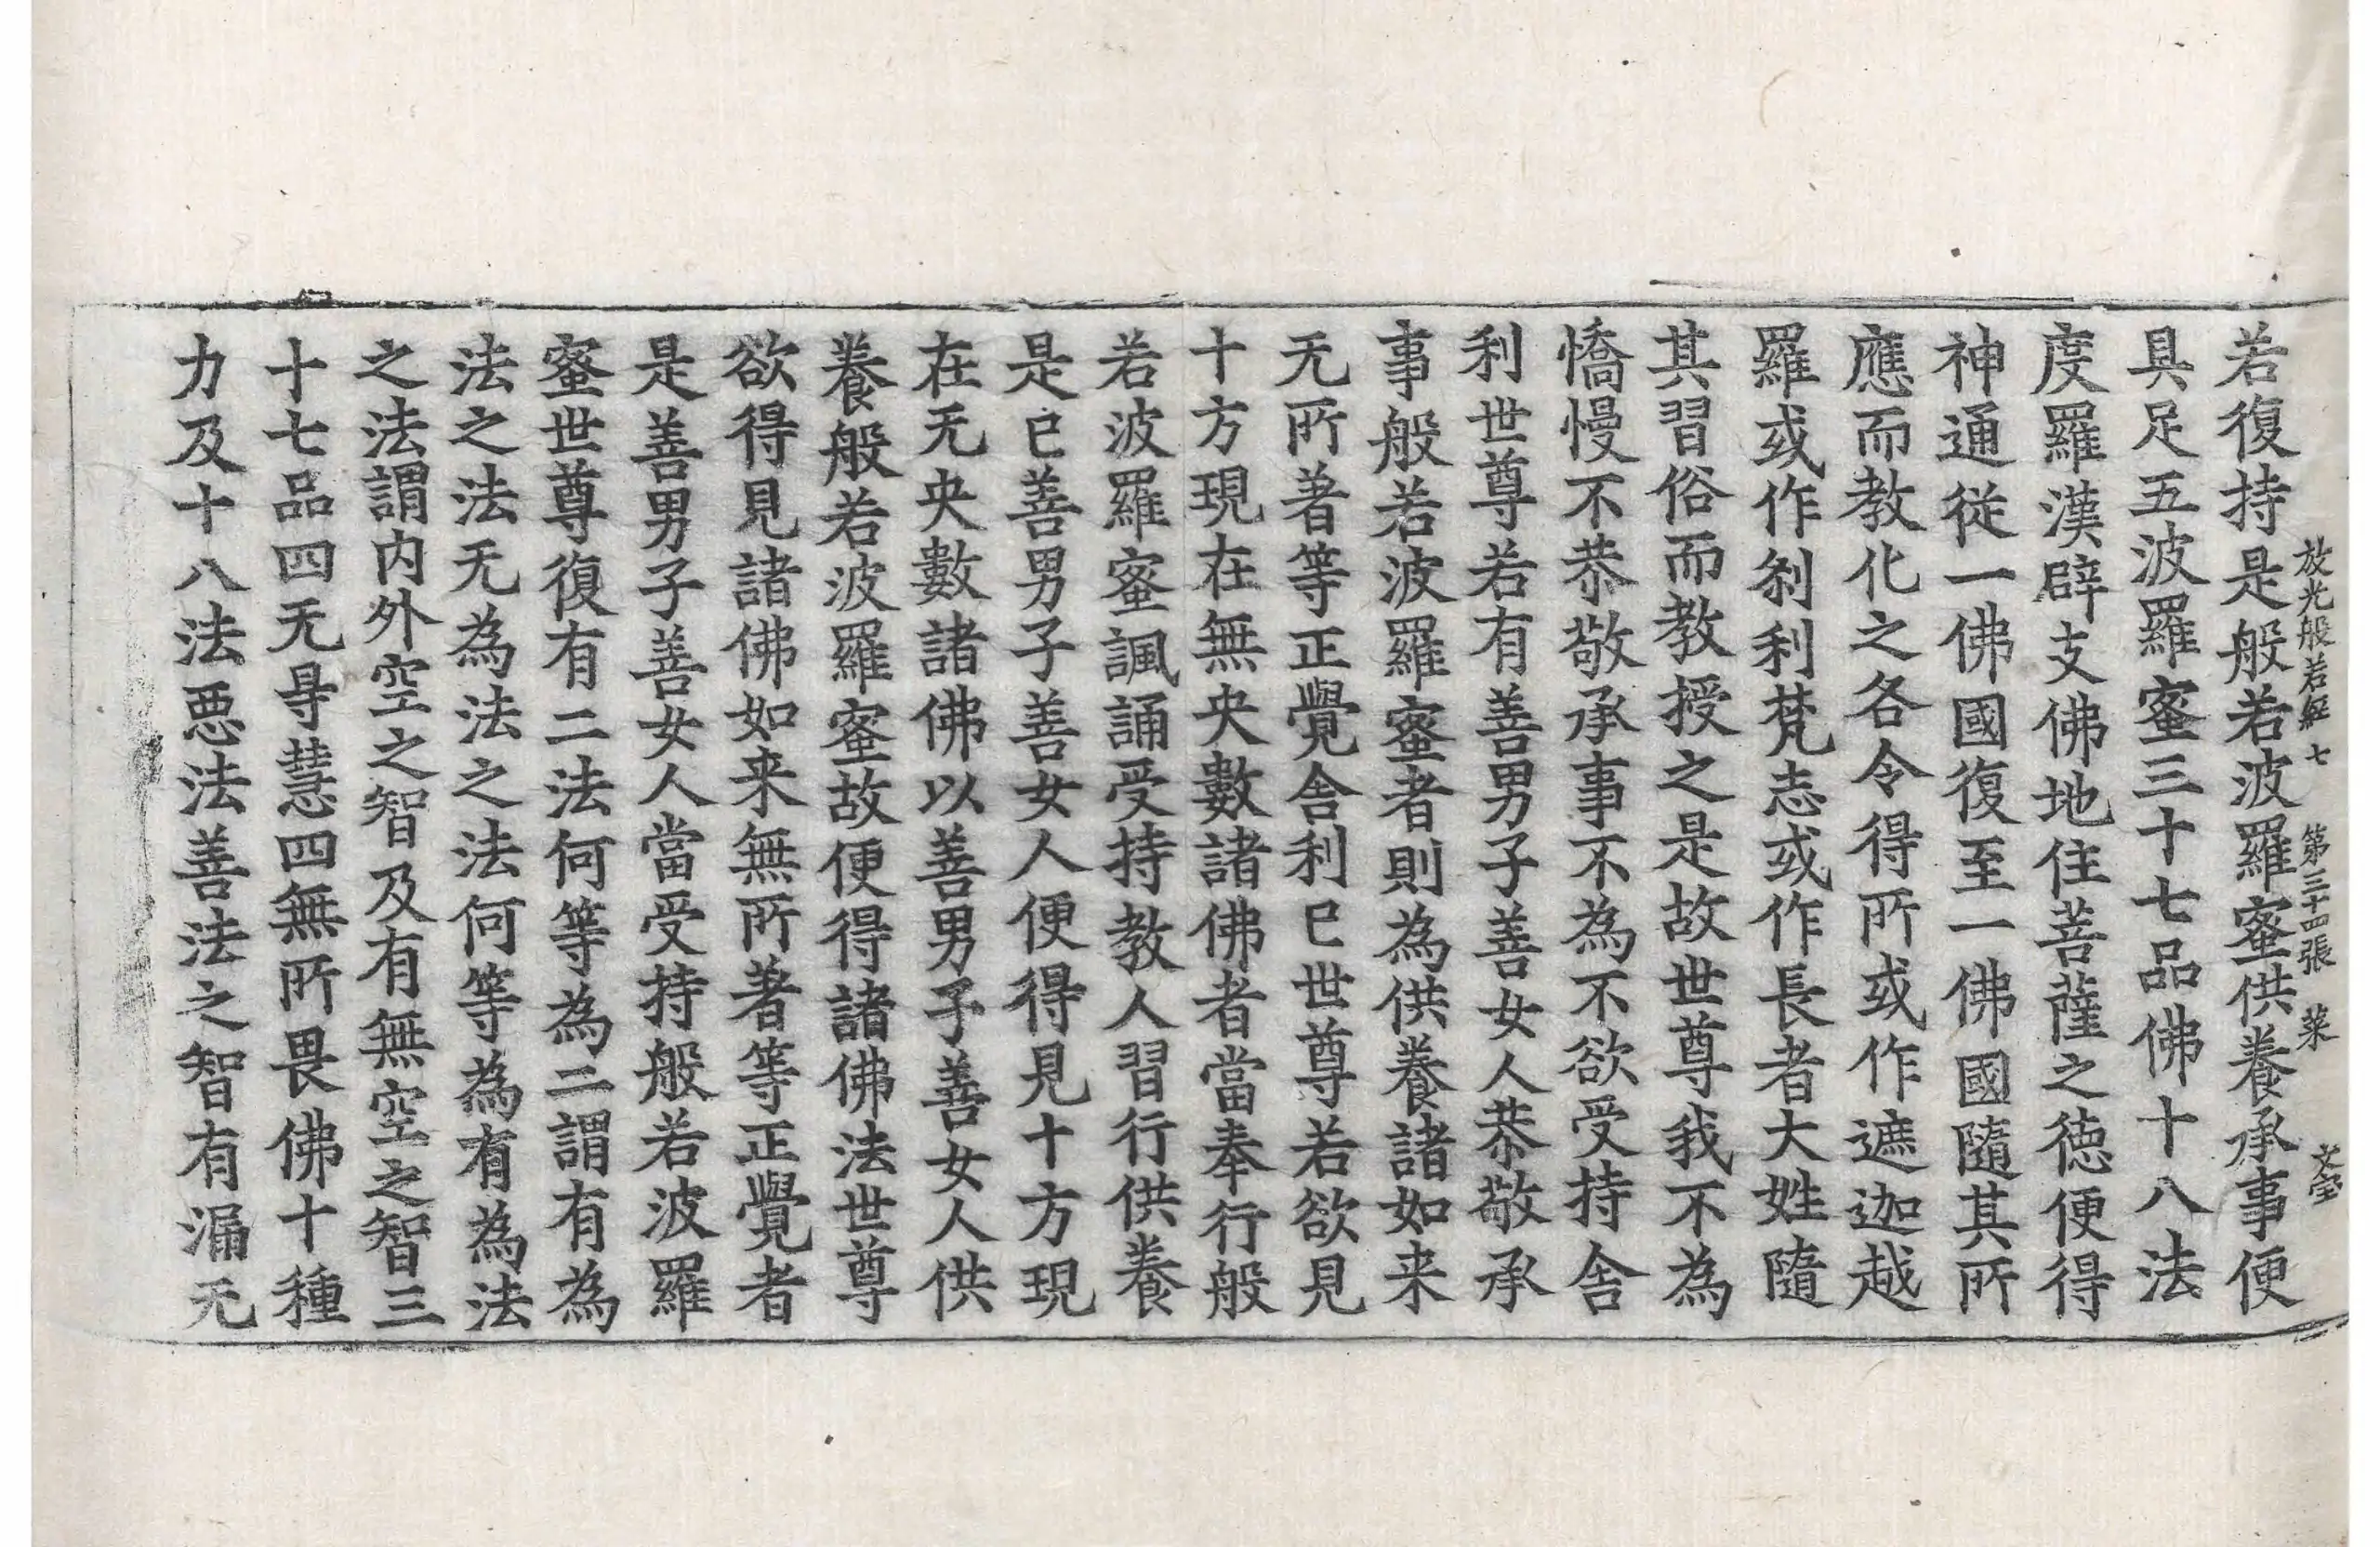 放光般若經 七 第三十四張 菜 文瑩
若復持是般若波羅蜜供養承事便
具足五波羅蜜三十七品佛十八法
度羅漢辟支佛地住菩薩之德便得
神通從一佛國復至一佛國隨其所
應而教化之各令得所或作遮迦越
羅或作剎利梵志或作長者大姓隨
其習俗而教授之是故世尊我不為
憍慢不恭敬承事不為不欲受持舍
利世尊若有善男子善女人恭敬承
事般若波羅蜜者則為供養諸如来
无所著等正覺舍利已世尊若欲見
十方現在無央數諸佛者當奉行般
若波羅蜜諷誦受持教人習行供養
是已善男子善女人便得見十方現
在无央數諸佛以善男子善女人供
養般若波羅蜜故便得諸佛法世尊
欲得見諸佛如来無所著等正覺者
是善男子善女人當受持般若波羅
蜜世尊復有二法何等為二謂有為
法之法无為法之法何等為有為法
之法謂内外空之智及有無空之智三
十七品四无㝵慧四無所畏佛十種
力及十八法惡法善法之智有漏无